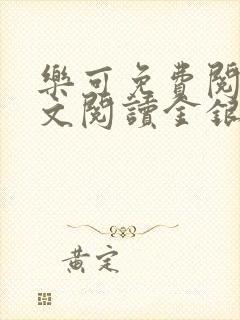 樂可免費閱
文閱讀金銀
黃定